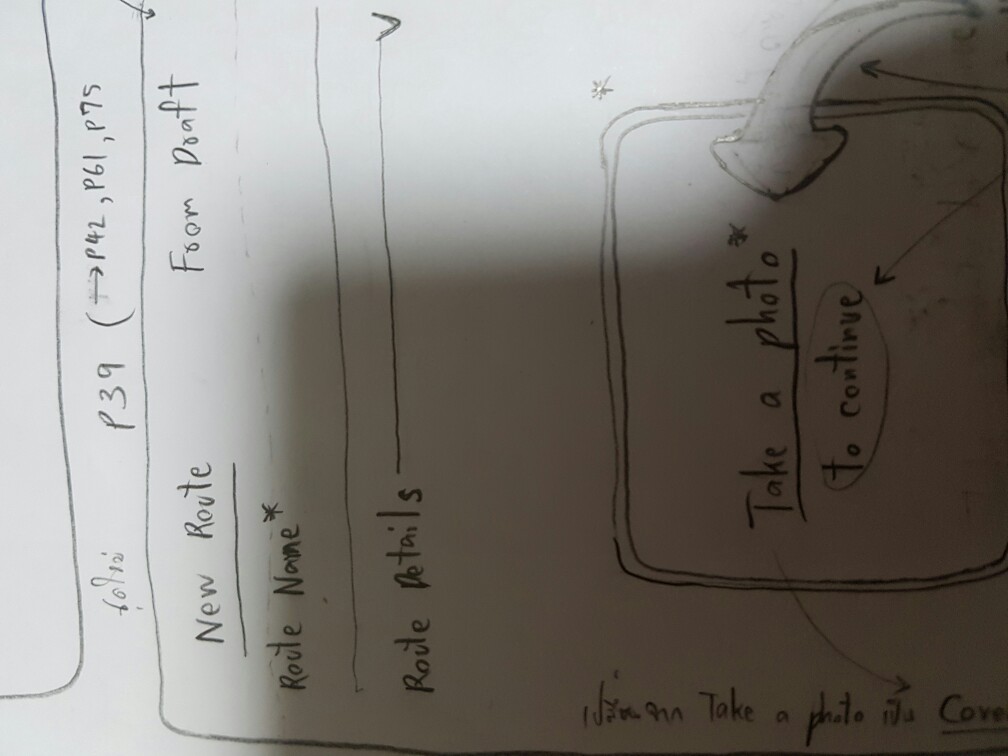 ข้อใหม่ P39 (→P42, P61, P75
New Route From Draft
Route Name*
Route Details
*
Take a photo*
to continue
เปลี่ยนจาก Take a photo เป็น